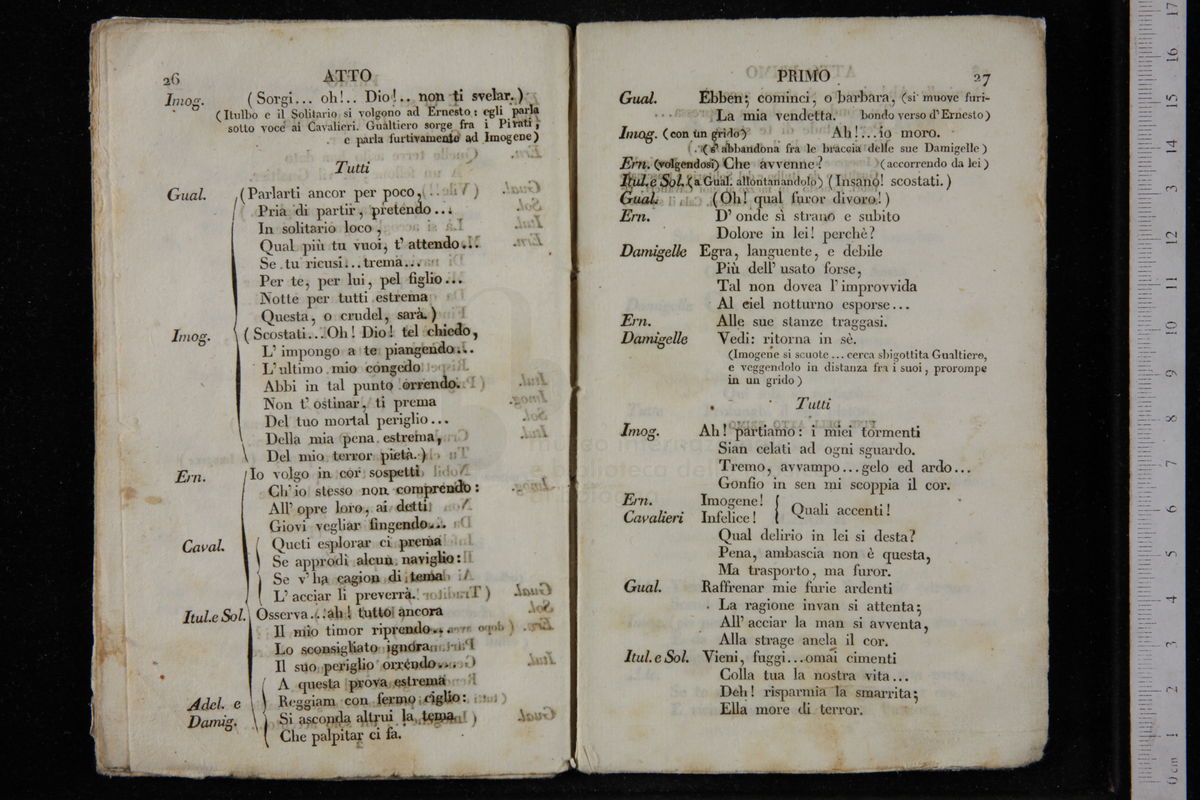 26 ATTO
Imog. (Sorgi... oh!.. Dio!.. non ti svelar.)
(Itulbo e il Solitario si volgono ad Ernesto: egli parla
sotto voce ai Cavalieri. Gualtiero sorge fra i Pirati,
e parla furtivamente ad Imogene)
Tutti
Gual. (Parlarti ancor per poco,
Pria di partir, pretendo...
In solitario loco,
Qual più tu vuoi, t' attendo...
Se tu ricusi... trema...
Per te, per lui, pel figlio...
Notte per tutti estrema
Questa, o crudel, sarà.)
Imog. (Scostati... Oh! Dio! tel chiedo,
L' impongo a te piangendo...
L' ultimo mio congedo
Abbi in tal punto orrendo.
Non t' ostinar, ti prema
Del tuo mortal periglio...
Della mia pena estrema,
Del mio terror pietà.)
Ern. Io volgo in cor sospetti
Ch' io stesso non comprendo:
All' opre loro, ai detti
Giovi vegliar fingendo...
Caval. Queti esplorar ci prema
Se approdi alcun naviglio:
Se v' ha cagion di tema
L' acciar li preverrà.
Itul. e Sol. Osserva... ah! tutto ancora
Il mio timor riprendo...
Lo sconsigliato ignora
Il suo periglio orrendo...
A questa prova estrema
Adel. e Reggiam con fermo ciglio:
Damig. Si asconda altrui la tema
Che palpitar ci fa.
PRIMO 27
Gual. Ebben; cominci, o barbara, (si muove furi-
La mia vendetta. bondo verso d' Ernesto)
Imog. (con un grido) Ah!...io moro.
(s' abbandona fra le braccia delle sue Damigelle)
Ern. (volgendosi) Che avvenne? (accorrendo da lei)
Itul. e Sol. (a Gual. allontanandolo) (Insano! scostati.)
Gual. (Oh! qual furor divoro!)
Ern. D' onde sì strano e subito
Dolore in lei! perchè?
Damigelle Egra, languente, e debile
Più dell' usato forse,
Tal non dovea l' improvvida
Al ciel notturno esporse...
Ern. Alle sue stanze traggasi.
Damigelle Vedi: ritorna in sè.
(Imogene si scuote ... cerca sbigottita Gualtiero,
e veggendolo in distanza fra i suoi, prorompe
in un grido)
Tutti
Imog. Ah! partiamo: i miei tormenti
Sian celati ad ogni sguardo.
Tremo, avvampo...gelo ed ardo...
Gonfio in sen mi scoppia il cor.
Ern. Imogene!
Cavalieri Infelice! { Quali accenti!
Qual delirio in lei si desta?
Pena, ambascia non è questa,
Ma trasporto, ma furor.
Gual. Raffrenar mie furie ardenti
La ragione invan si attenta;
All' acciar la man si avventa,
Alla strage anela il cor.
Itul. e Sol. Vieni, fuggi...omai cimenti
Colla tua la nostra vita...
Deh! risparmia la smarrita;
Ella more di terror.